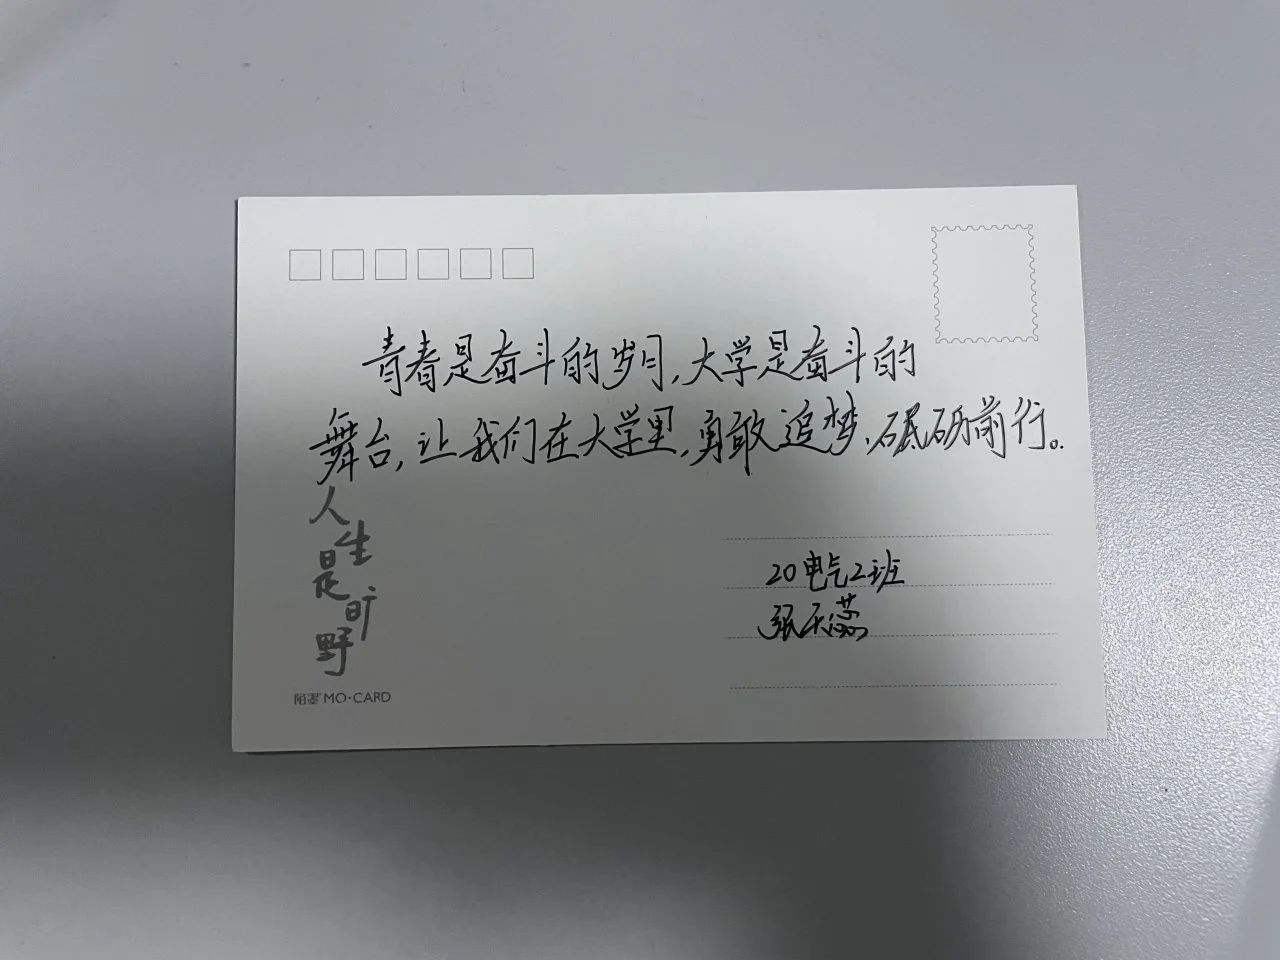 青春是奋斗的岁月,大学是奋斗的
舞台,让我们在大学里,勇敢追梦,砥砺前行。
人生是旷野
20电气2班
张天蕊
陌墨 MO·CARD